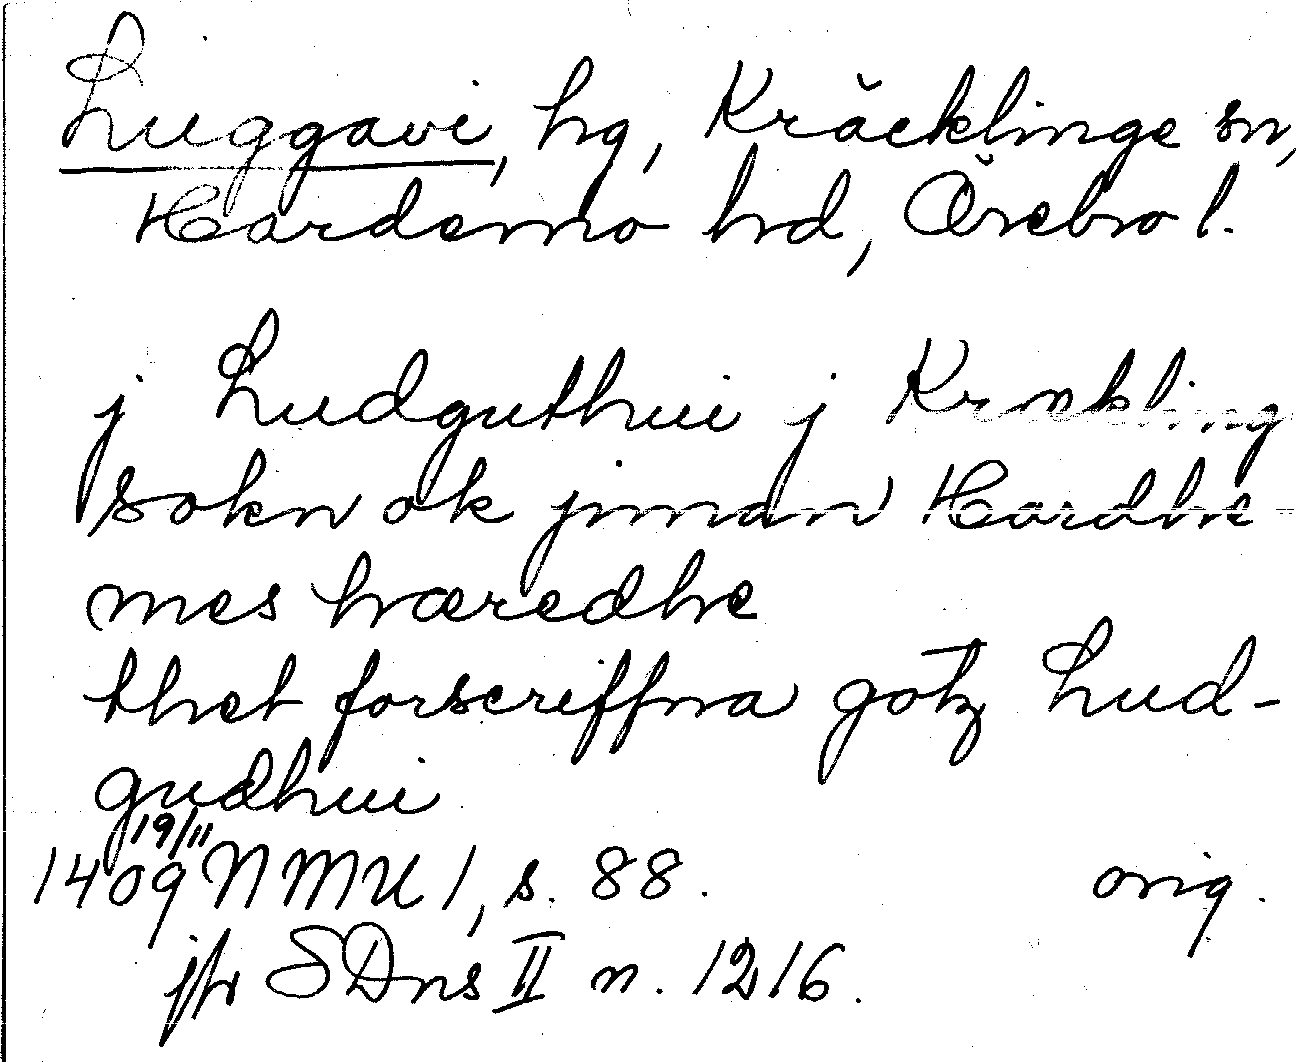 Luggavi, hg, Kräcklinge sn,
Hardemo hd, Örebro l.
j Ludguthui j Krækling
sokn ok jnnan Hardhe
mes hæredhe
thet forscriffna gotz Lud-
gudhui
1409 19/11 NMU 1, s. 88. orig.
jfr SDns II n. 1216.